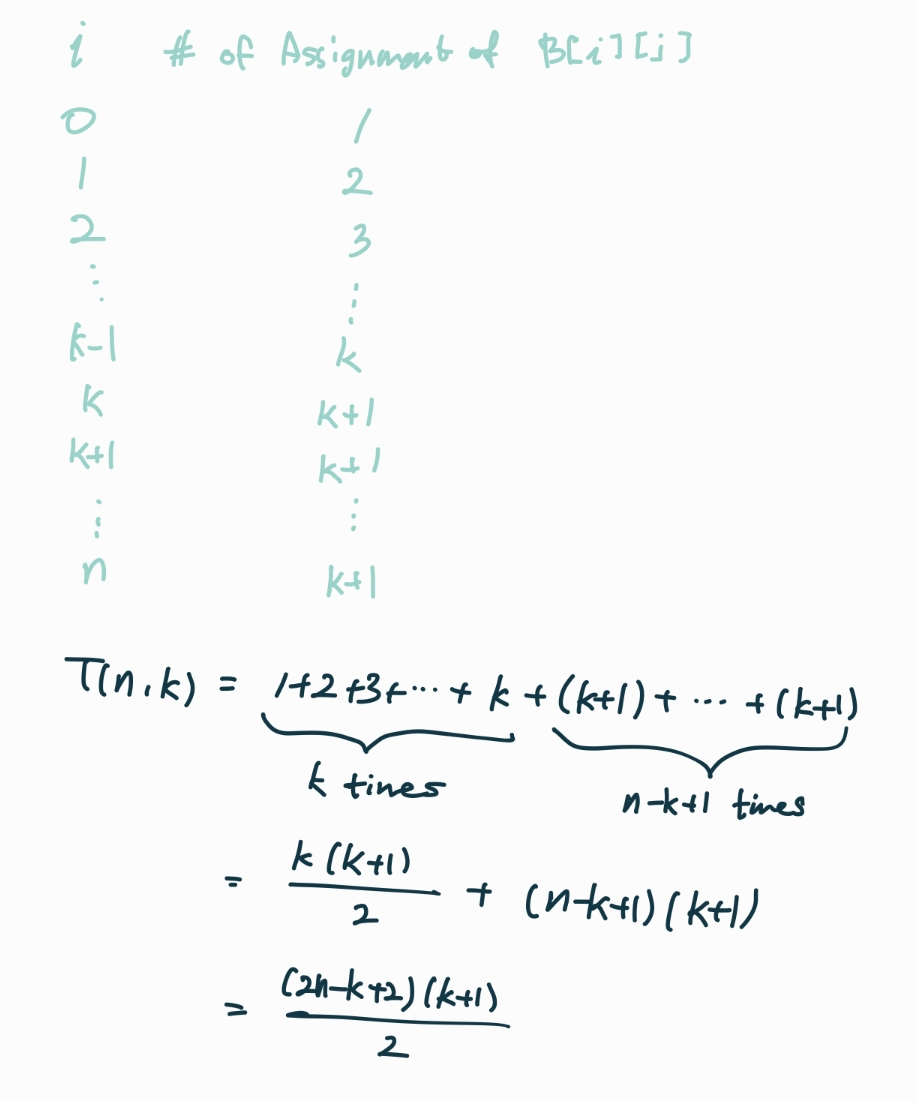 i # of Assignment of B[i][j]
0 1
1 2
2 3
⋮ ⋮
k-1 k
k k+1
k+1 k+1
⋮ ⋮
n k+1
T(n,k) = 1+2+3+⋯+ k + (k+1) + ⋯ + (k+1)
k times n-k+1 times
= k(k+1)/2 + (n-k+1)(k+1)
= (2n-k+2)(k+1)/2